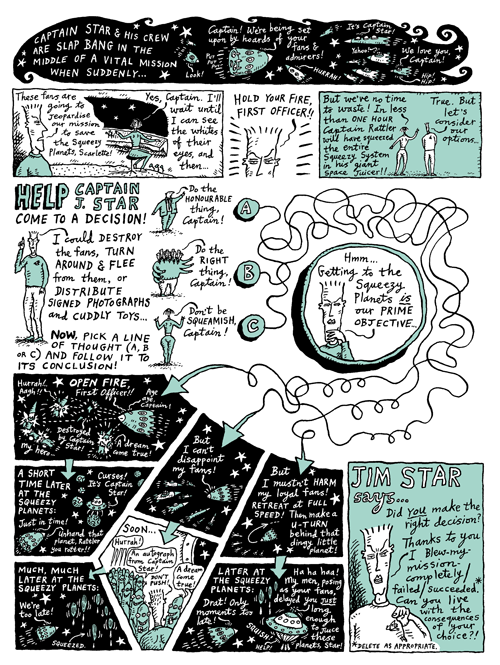 CAPTAIN STAR & HIS CREW
ARE SLAP BANG IN THE
MIDDLE OF A VITAL MISSION
WHEN SUDDENLY...
Look!
Captain! We're being set
upon by hoards of your
fans &
admirers!
It's Captain
Star!
Yahoo!
HURRAH!
We love you,
Captain!
Hip!
Hip!
These fans are
going to
jeopardise
our mission
to save
the Squeezy
Planets, Scarlette!
Yes, Captain. I'll
wait until
I can see
the whites
of their
eyes, and
then...
HOLD YOUR FIRE,
FIRST OFFICER!!
But we've no time
to waste! In less
than ONE HOUR
Captain Rattler
will have squeezed
the entire
Squeezy System
in his giant
space Juicer!!
True. But
let's
consider
our
options...
HELP CAPTAIN
J. STAR
COME TO A DECISION!
I could DESTROY
the fans, TURN
AROUND & FLEE
from them, or
DISTRIBUTE
SIGNED PHOTOGRAPHS
and CUDDLY TOYS...
NOW, PICK A LINE
OF THOUGHT (A, B
or C) AND FOLLOW IT TO
ITS CONCLUSION!
Do the
HONOURABLE
thing,
Captain!
A
Do the
RIGHT
thing,
Captain!
B
Don't be
SQUEAMISH,
Captain!
C
Hmm...
Getting to the
Squeezy
Planets is
our PRIME
OBJECTIVE...
Hurrah!
Aagh!!
OPEN FIRE,
First Officer!!
Aye
aye,
Captain!
Destroyed
by Captain
Star!
My hero...
A dream
come true!
But
I can't
disappoint
my fans!
But
I mustn't HARM
my loyal fans!
RETREAT at FULL
SPEED! Then make a
U-TURN
behind that
dingy, little
planet!
A SHORT
TIME LATER
AT THE
SQUEEZY
PLANETS:
Curses!
It's Captain
Star!
Just in time!
Unhand that
planet, Rattler
you ratter!!
SOON...
Hurrah!
An autograph
from Captain
Star!
DON'T
PUSH!
A dream
come
true!
MUCH, MUCH
LATER AT THE
SQUEEZY PLANETS:
We're
too late!
SQUEEZED.
LATER AT
THE SQUEEZY
PLANETS:
Drat! Only
moments too
late!
Ha ha haa!
My men, posing
as your fans,
delayed you just
long
enough
to juice
these
planets, Star!
SQUISH!
HELP!
JIM STAR
says...
Did you make the
right decision?
Thanks to you
I Blew my
mission
completely/
failed/succeeded.*
Can you live
with the
consequences
of your
choice?!
*DELETE AS APPROPRIATE.